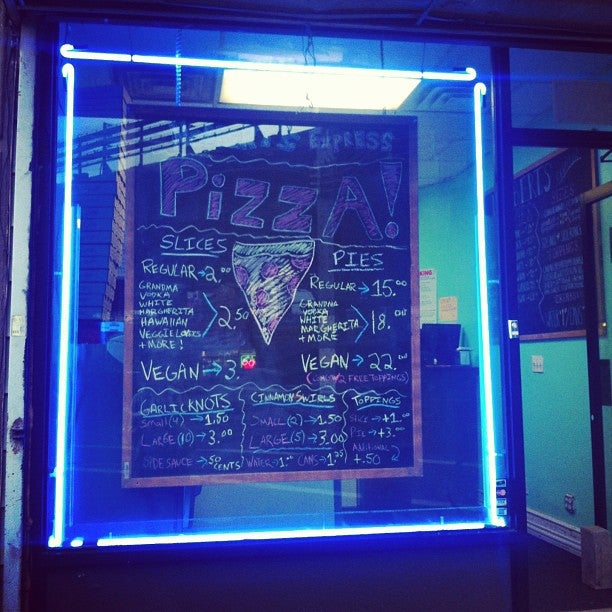 EXPRESS
PizzA!
SLICES
REGULAR → 2.00
GRANDMA
VODKA
WHITE
MARGHERITA
HAWAIIAN
VEGGIE LOVERS
+ MORE!
2.50
VEGAN → 3.
PIES
REGULAR → 15.00
GRANDMA
VODKA
WHITE
MARGHERITA
+ MORE
18.00
VEGAN → 22.00
2 FREE TOPPINGS)
GARLIC KNOTS
Small (4) → 1.50
LARGE (10) → 3.00
SIDE SAUCE → 50 CENTS
CINNAMON SWIRLS
SMALL (2) → 1.50
LARGE (5) → 3.00
WATER → 1.00 CANS → 1.25
TOPPINGS
SLICE → +1.00
PIE → +3.00
ADDITIONAL
+.50